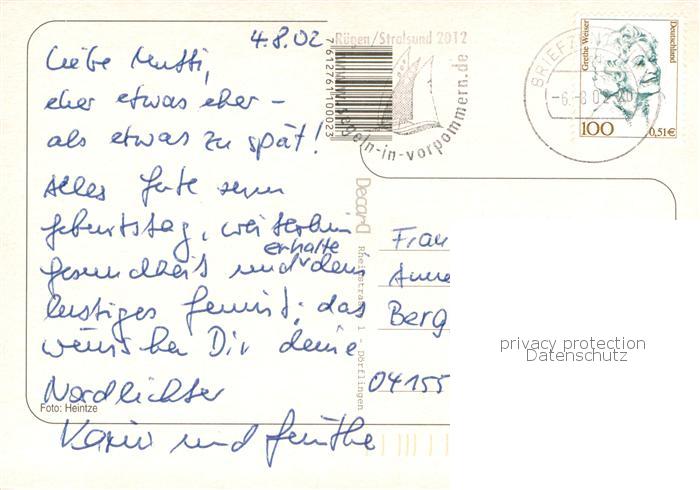 4.8.02
Liebe Mutti,
eher etwas eher –
als etwas zu spät!
Alles Gute zum
Geburtstag, weiterhin
erhalte
Gesundheit und dein
lustiges Gemüt; das
wünschen Dir deine
Nordlichter
Karin und Günthe
Foto: Heintze
Rügen/Stralsund 2012
segeln-in-vorpommern.de
7612761100023
BRIEFZENT
-6.-8.02-20
Grethe Weiser
Deutschland
100
0,51€
Decard
Rheinstrasse 1 - Dörflingen
Frau
Anne
Berg
04155
privacy protection
Datenschutz